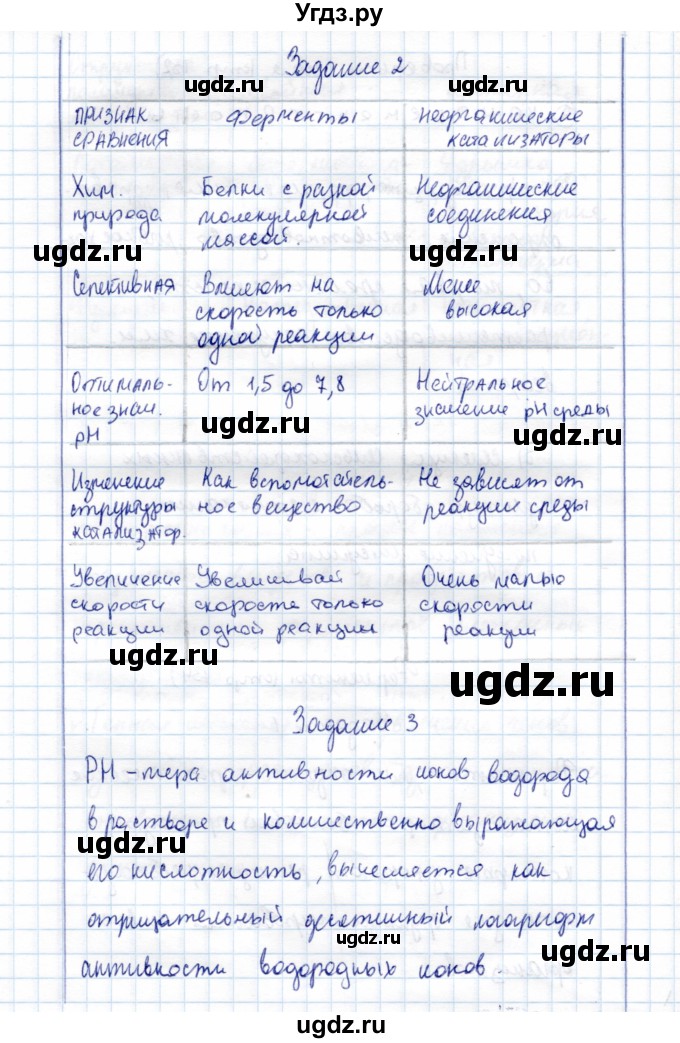 Угдз.ру
Задание 2
ugdz.ru ugdz.ru
ПРИЗНАК СРАВНЕНИЯ
Ферменты
Неорганические катализаторы
Хим. природа
Белки с разной молекулярной массой.
Неорганические соединения
ugdz.ru ugdz.ru
Селективная
Влияют на скорость только одной реакции
Менее высокая
Оптималь-
ное знач.
pH
От 1,5 до 7,8
Нейтральное
значение pH среды
ugdz.ru
Изменение
структуры
катализатор.
Как вспомогатель-
ное вещество
Не зависят от
реакции среды
Увеличение
скорости
реакции
Увеличивай
скорость только
одной реакции
Очень малую
скорости
реакции
ugdz.ru
ugdz.ru
Задание 3
PH - мера активности ионов водорода
в растворе и количественно выражающая
ugdz.ru
его кислотность, вычесляется как
отрицательный десятичный логарифм
ugdz.ru
ugdz.ru
активности водородных ионов.
ugdz.ru